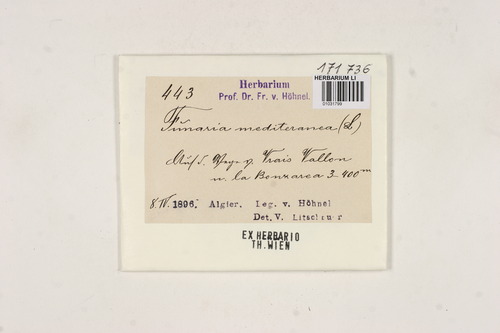 171736
HERBARIUM LI
01031799
443
Herbarium
Prof. Dr. Fr. v. Höhnel.
Funaria mediteranea (L)
Auf d. Wege v. Frais Vallon
n. la Bouzarea 3-400m
8.IV. 1896. Algier. Leg. v. Höhnel
Det. V. Litschauer
EX HERBARIO
TH. WIEN